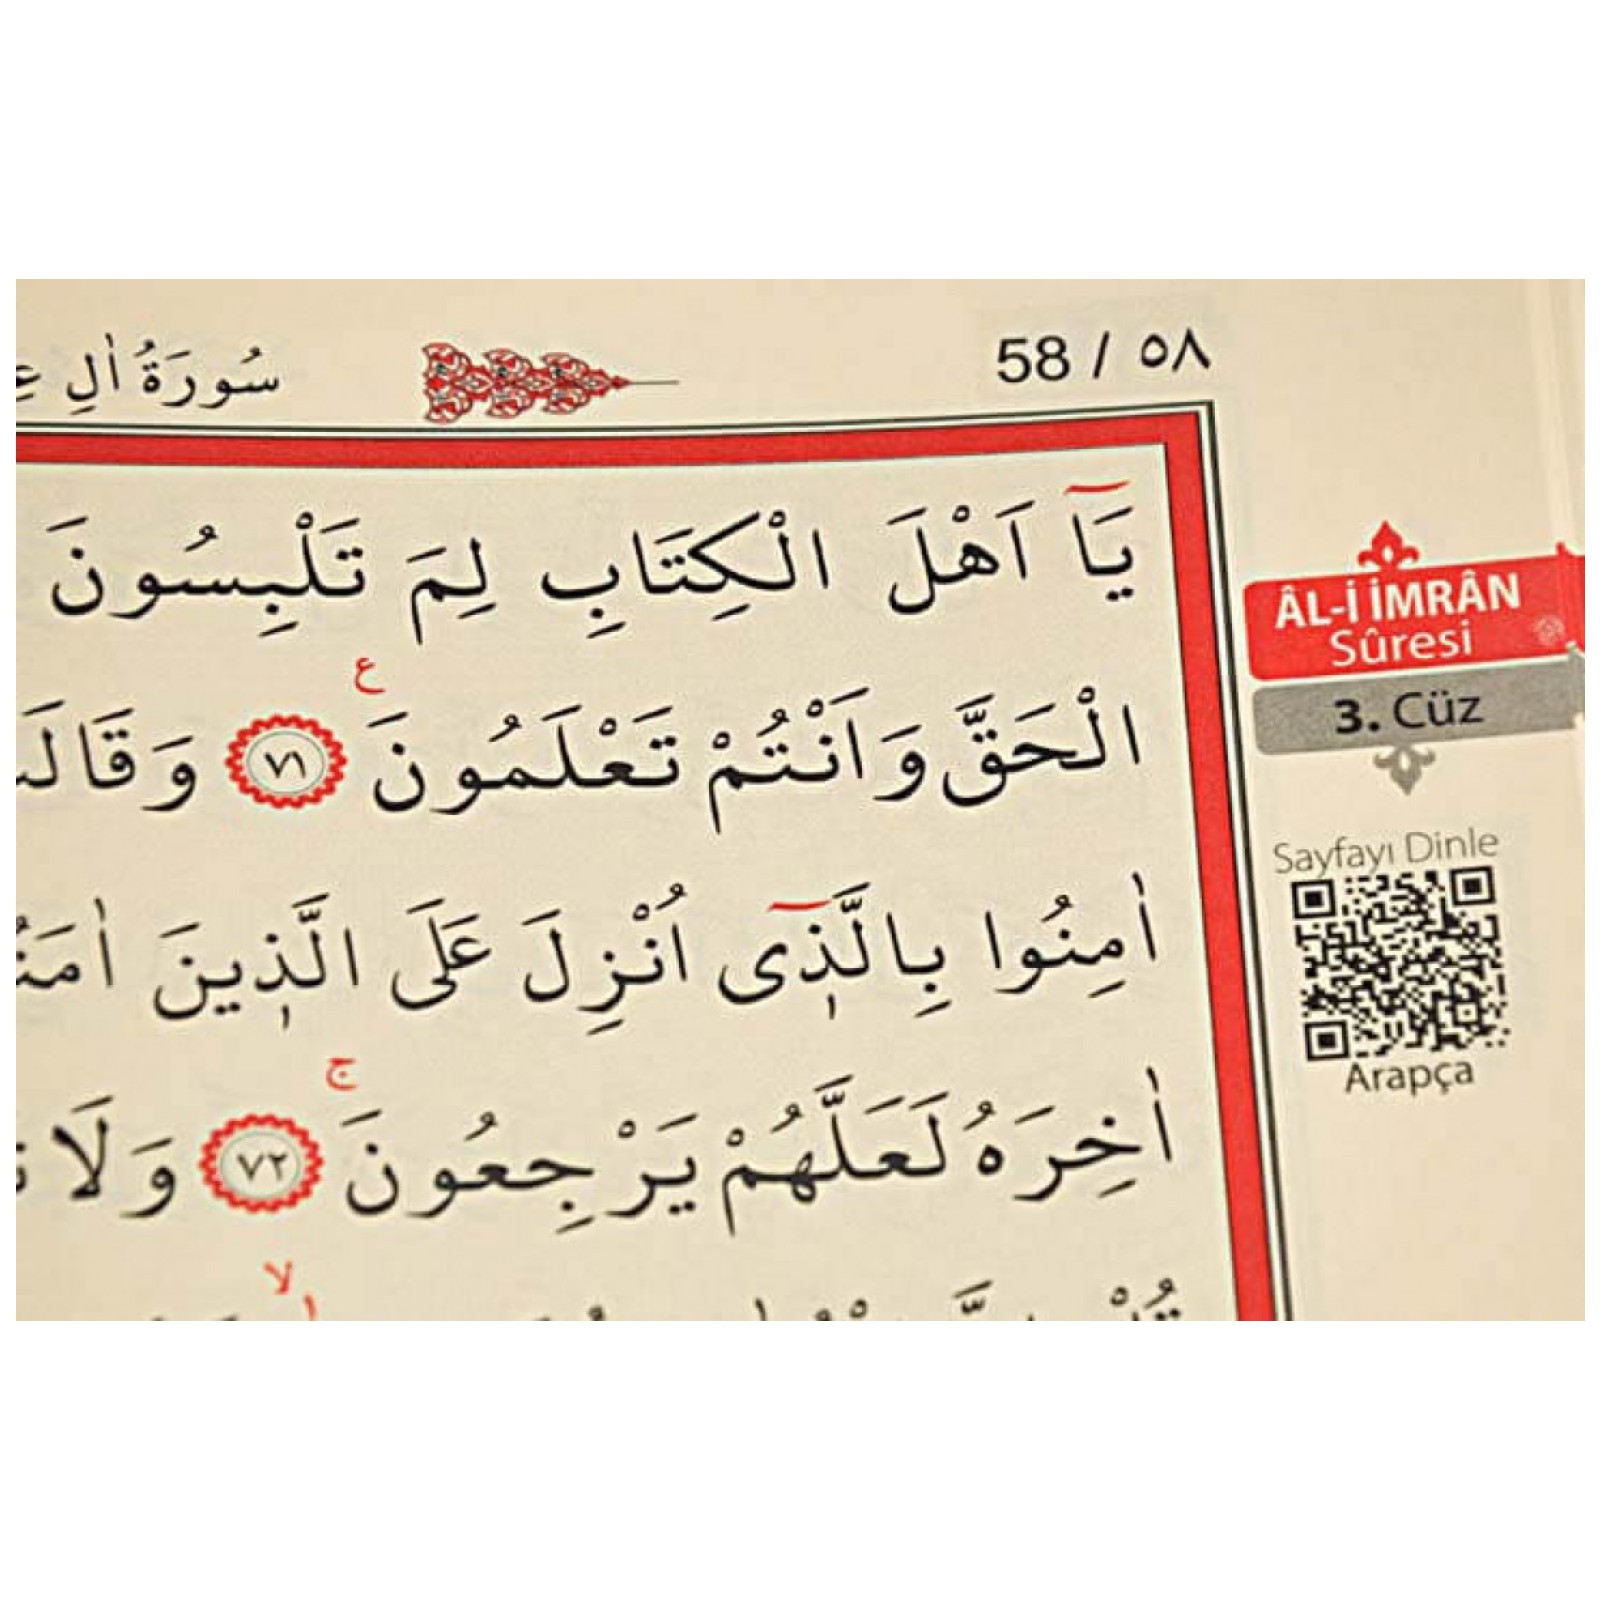 سُورَةُ اٰلِ
58 / ٥٨
يَٓا اَهْلَ الْكِتَابِ لِمَ تَلْبِسُونَ
الْحَقَّ وَاَنْتُمْ تَعْلَمُونَ ع ٧١ وَقَالَت
اٰمِنُوا بِالَّذ۪ٓى اُنْزِلَ عَلَى الَّذ۪ينَ اٰمَنُ
اٰخِرَهُ لَعَلَّهُمْ يَرْجِعُونَ ج ٧٢ وَلَا
لا
ÂL-İ İMRÂN
Sûresi
3. Cüz
Sayfayı Dinle
Arapça